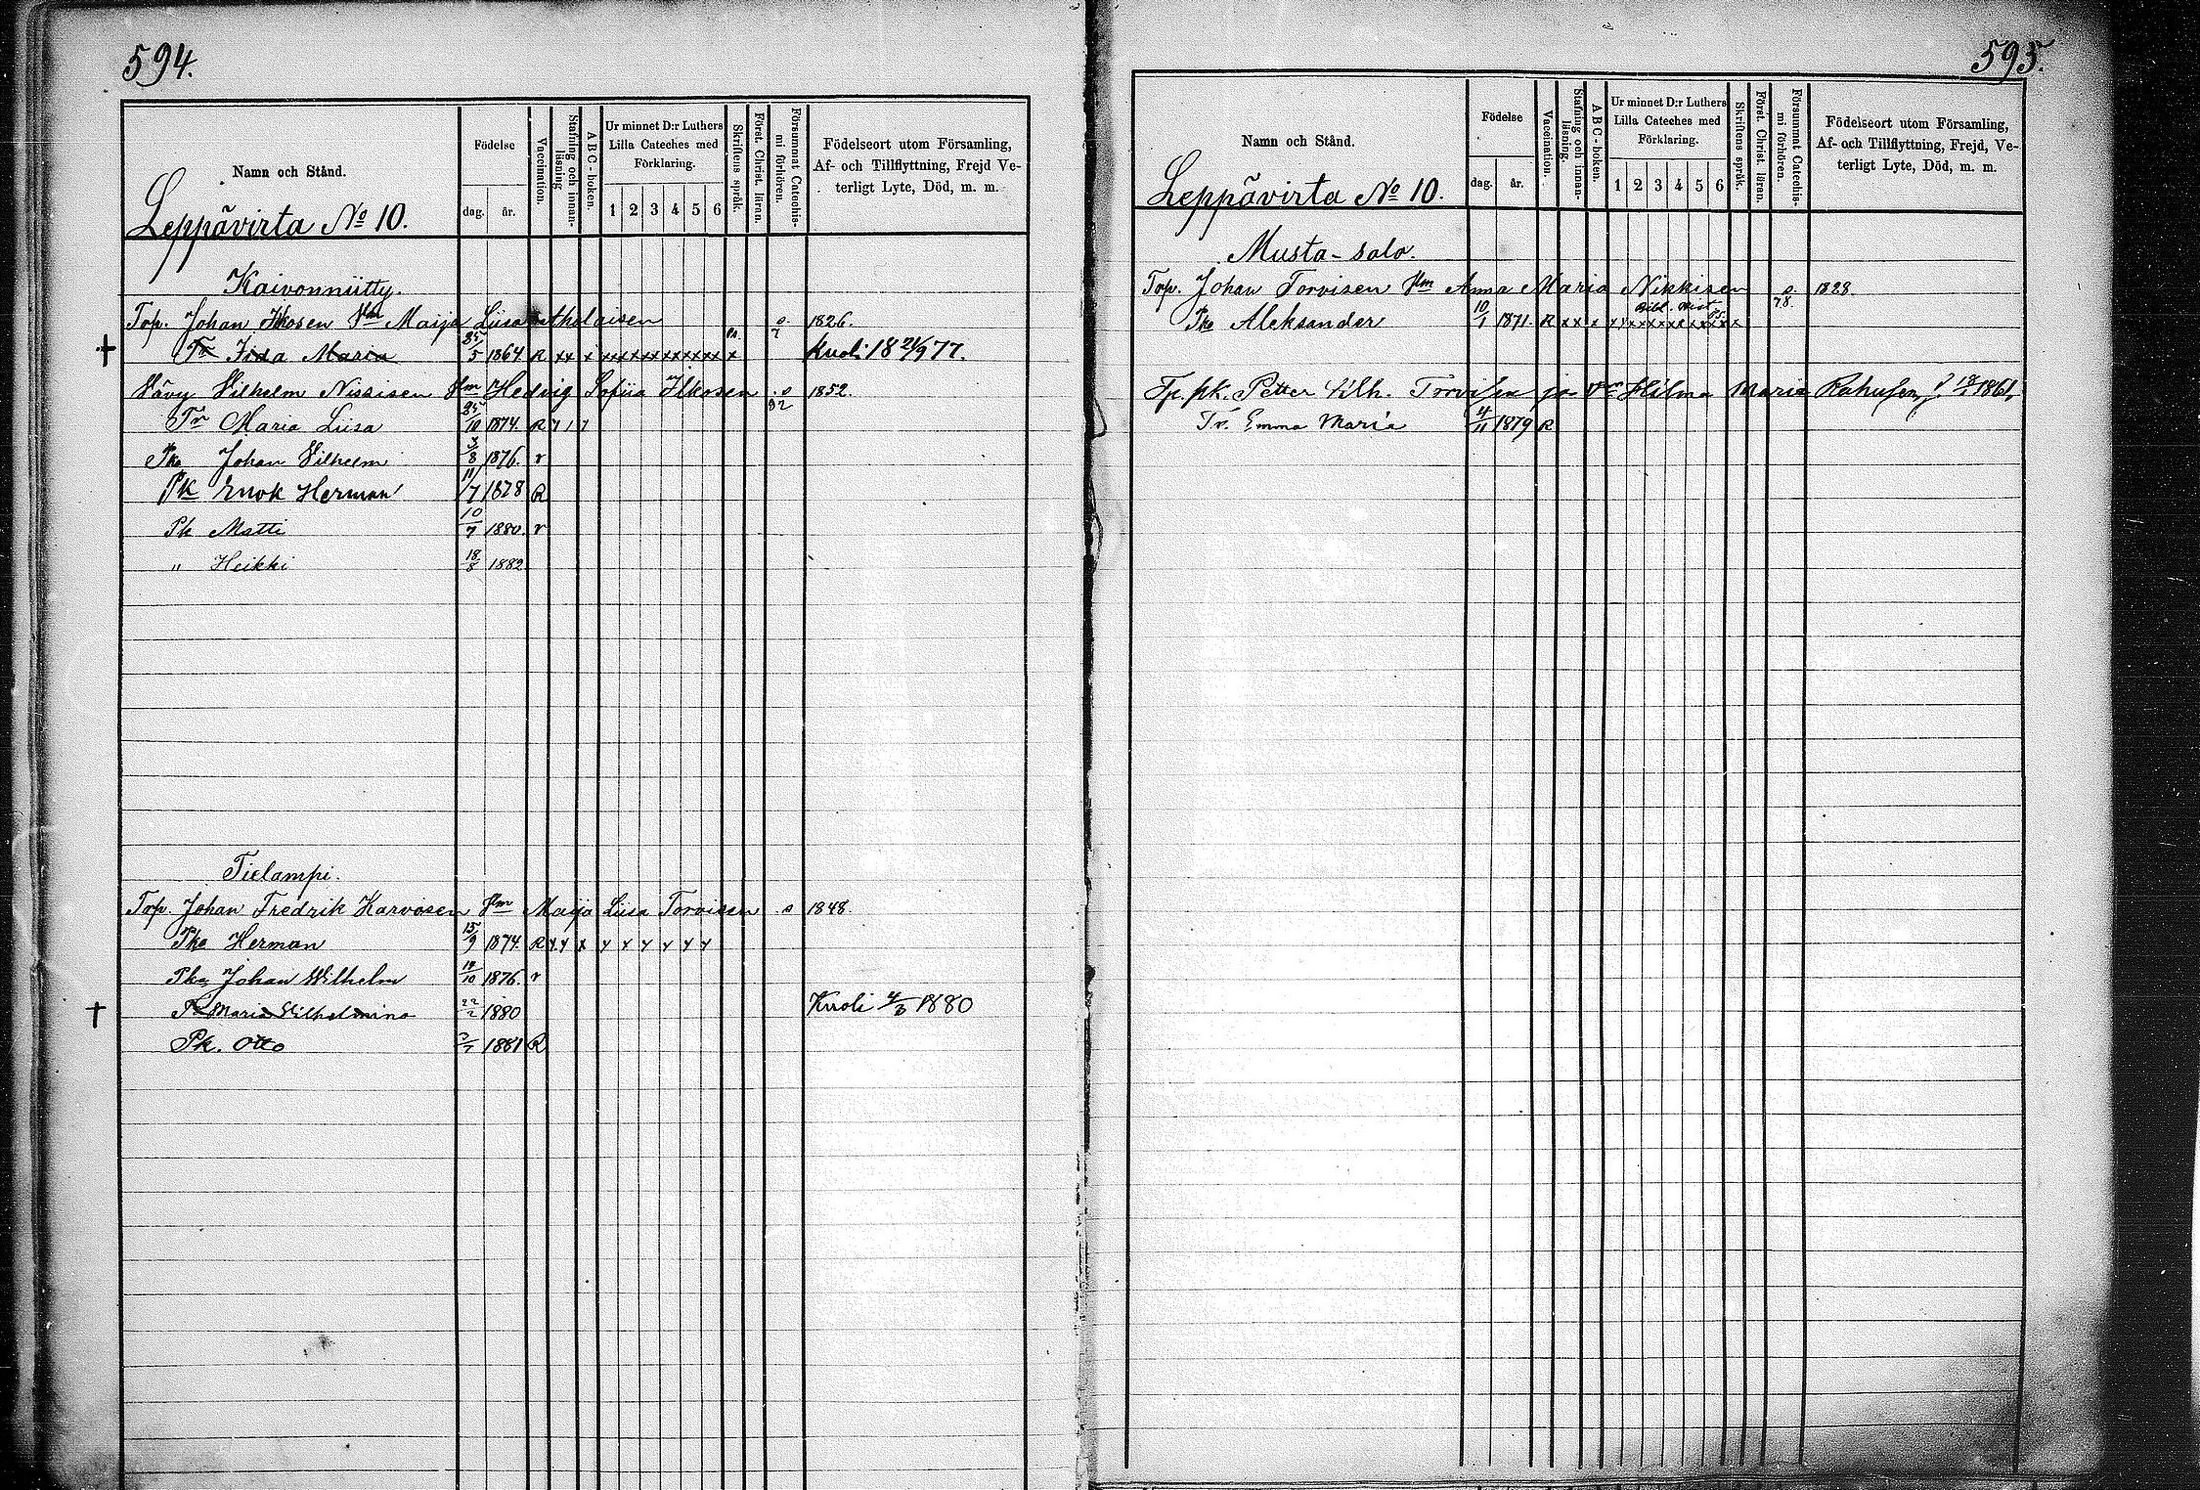 594.
Namn och Stånd.
Födelse
dag.
år.
Vaccination.
Stafning och innan-läsning
ABC-boken.
Ur minnet D:r Luthers
Lilla Cateches med
Förklaring.
1 2 3 4 5 6
Skriftens språk.
Först. Christ. läran.
Försummat Catechis-mi förhören.
Födelseort utom Församling,
Af- och Tillflyttning, Frejd Ve-
terligt Lyte, Död, m. m.
Leppävirta No 10.
Kaivonniitty.
Top. Johan Ikosen Vm Maija Liisa 1826.
Tr Iida Maria 25/5 1864 R xx x xxxxxxxxxxx x Kuoli 18 21/9 77.
Vävy Vilhelm Nissisen Vm Hedvig Sofiia Ikosen . s 1852.
Tr Maria Liisa 25/10 1874. R
Pka Johan Vilhelm 3/8 1876. r
Pk Enok Herman 11/7 1878 R
Pk Matti 10/7 1880. r
" Heikki 18/8 1882
Tielampi.
Top. Johan Fredrik Karvosen Vm Maija Liisa Torvisen . s 1848.
Pka Herman 15/9 1874. R x x x x x x x x x
Pka Johan Wilhelm 14/10 1876. r
Tr Maria Vilhelmina 22/2 1880 Kuoli 4/3 1880
Pk. Otto 1881 R
595.
Namn och Stånd.
Födelse
dag.
år.
Vaccination.
Stafning och innan-läsning.
ABC-boken.
Ur minnet D:r Luthers
Lilla Cateches med
Förklaring.
1 2 3 4 5 6
Skriftens språk.
Först. Christ. läran.
Försummat Catechis-mi förhören.
Födelseort utom Församling,
Af- och Tillflyttning, Frejd, Ve-
terligt Lyte, Död, m. m.
Leppävirta No 10.
Musta-salo.
Top. Johan Torvisen Vm Anna Maria Nikkisen s. 78. 1828.
Pka Aleksander 10/1 1871. R xx x xxxxxxxxxxx x
Tp. pk. Petter Vilh. Torvisen ja Vm Hilma Maria Rahusen, 1861,
Tr. Emma Maria 4/11 1879 R